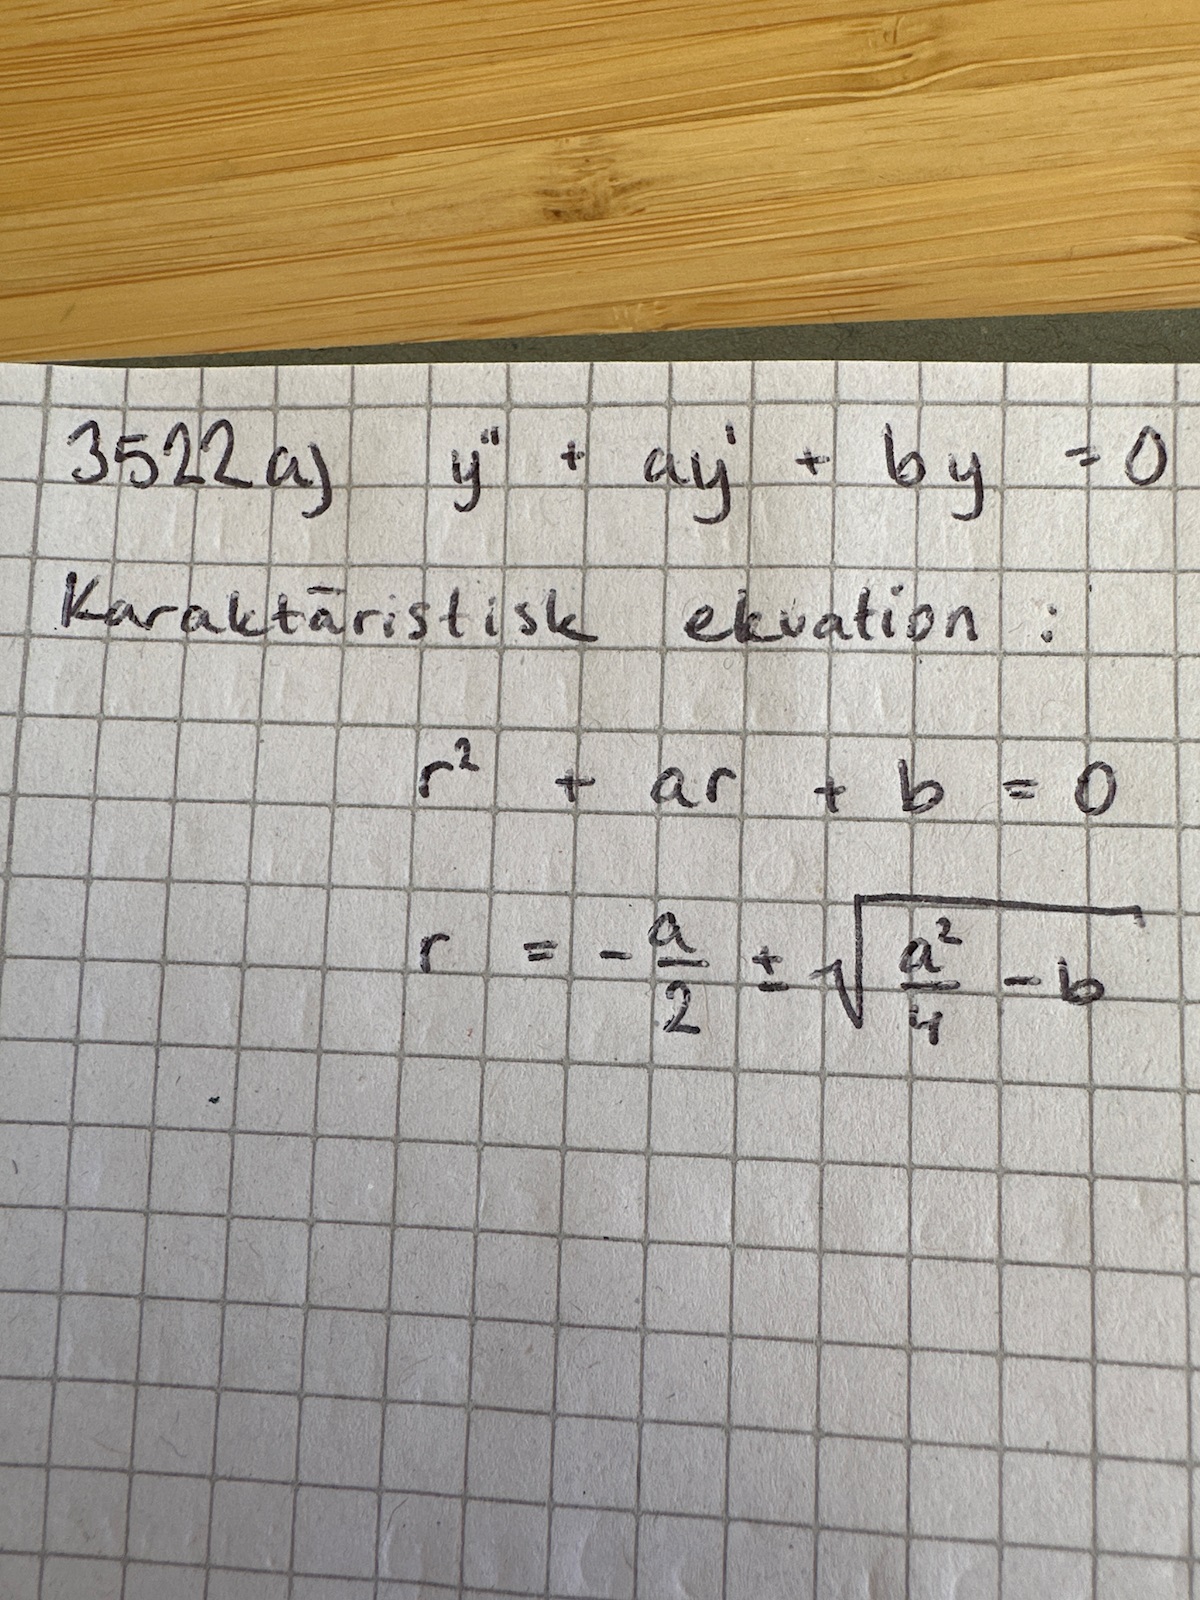 3522 a) y'' + ay' + by = 0
Karaktäristisk ekvation :
r² + ar + b = 0
r = -a/2 ± √(a²/4 - b)